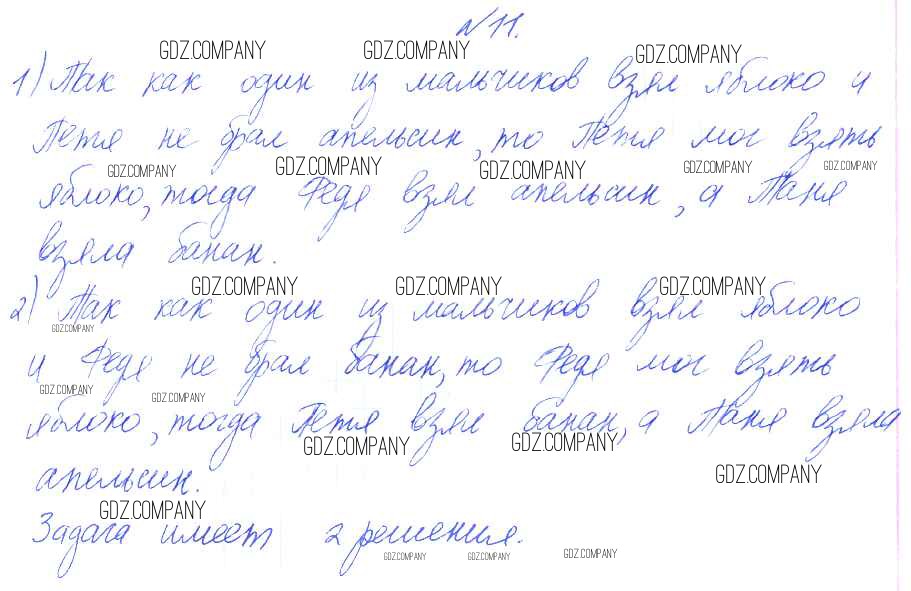 № 11.
1) Так как один из мальчиков взял яблоко и
Петя не брал апельсин, то Петя мог взять
яблоко, тогда Федя взял апельсин, а Таня
взяла банан.
2) Так как один из мальчиков взял яблоко
и Федя не брал банан, то Федя мог взять
яблоко, тогда Петя взял банан, а Таня взяла
апельсин.
Задача имеет 2 решения.
GDZ.COMPANY GDZ.COMPANY GDZ.COMPANY
GDZ.COMPANY GDZ.COMPANY GDZ.COMPANY GDZ.COMPANY GDZ.COMPANY
GDZ.COMPANY GDZ.COMPANY GDZ.COMPANY
GDZ.COMPANY
GDZ.COMPANY GDZ.COMPANY
GDZ.COMPANY GDZ.COMPANY
GDZ.COMPANY
GDZ.COMPANY
GDZ.COMPANY GDZ.COMPANY GDZ.COMPANY